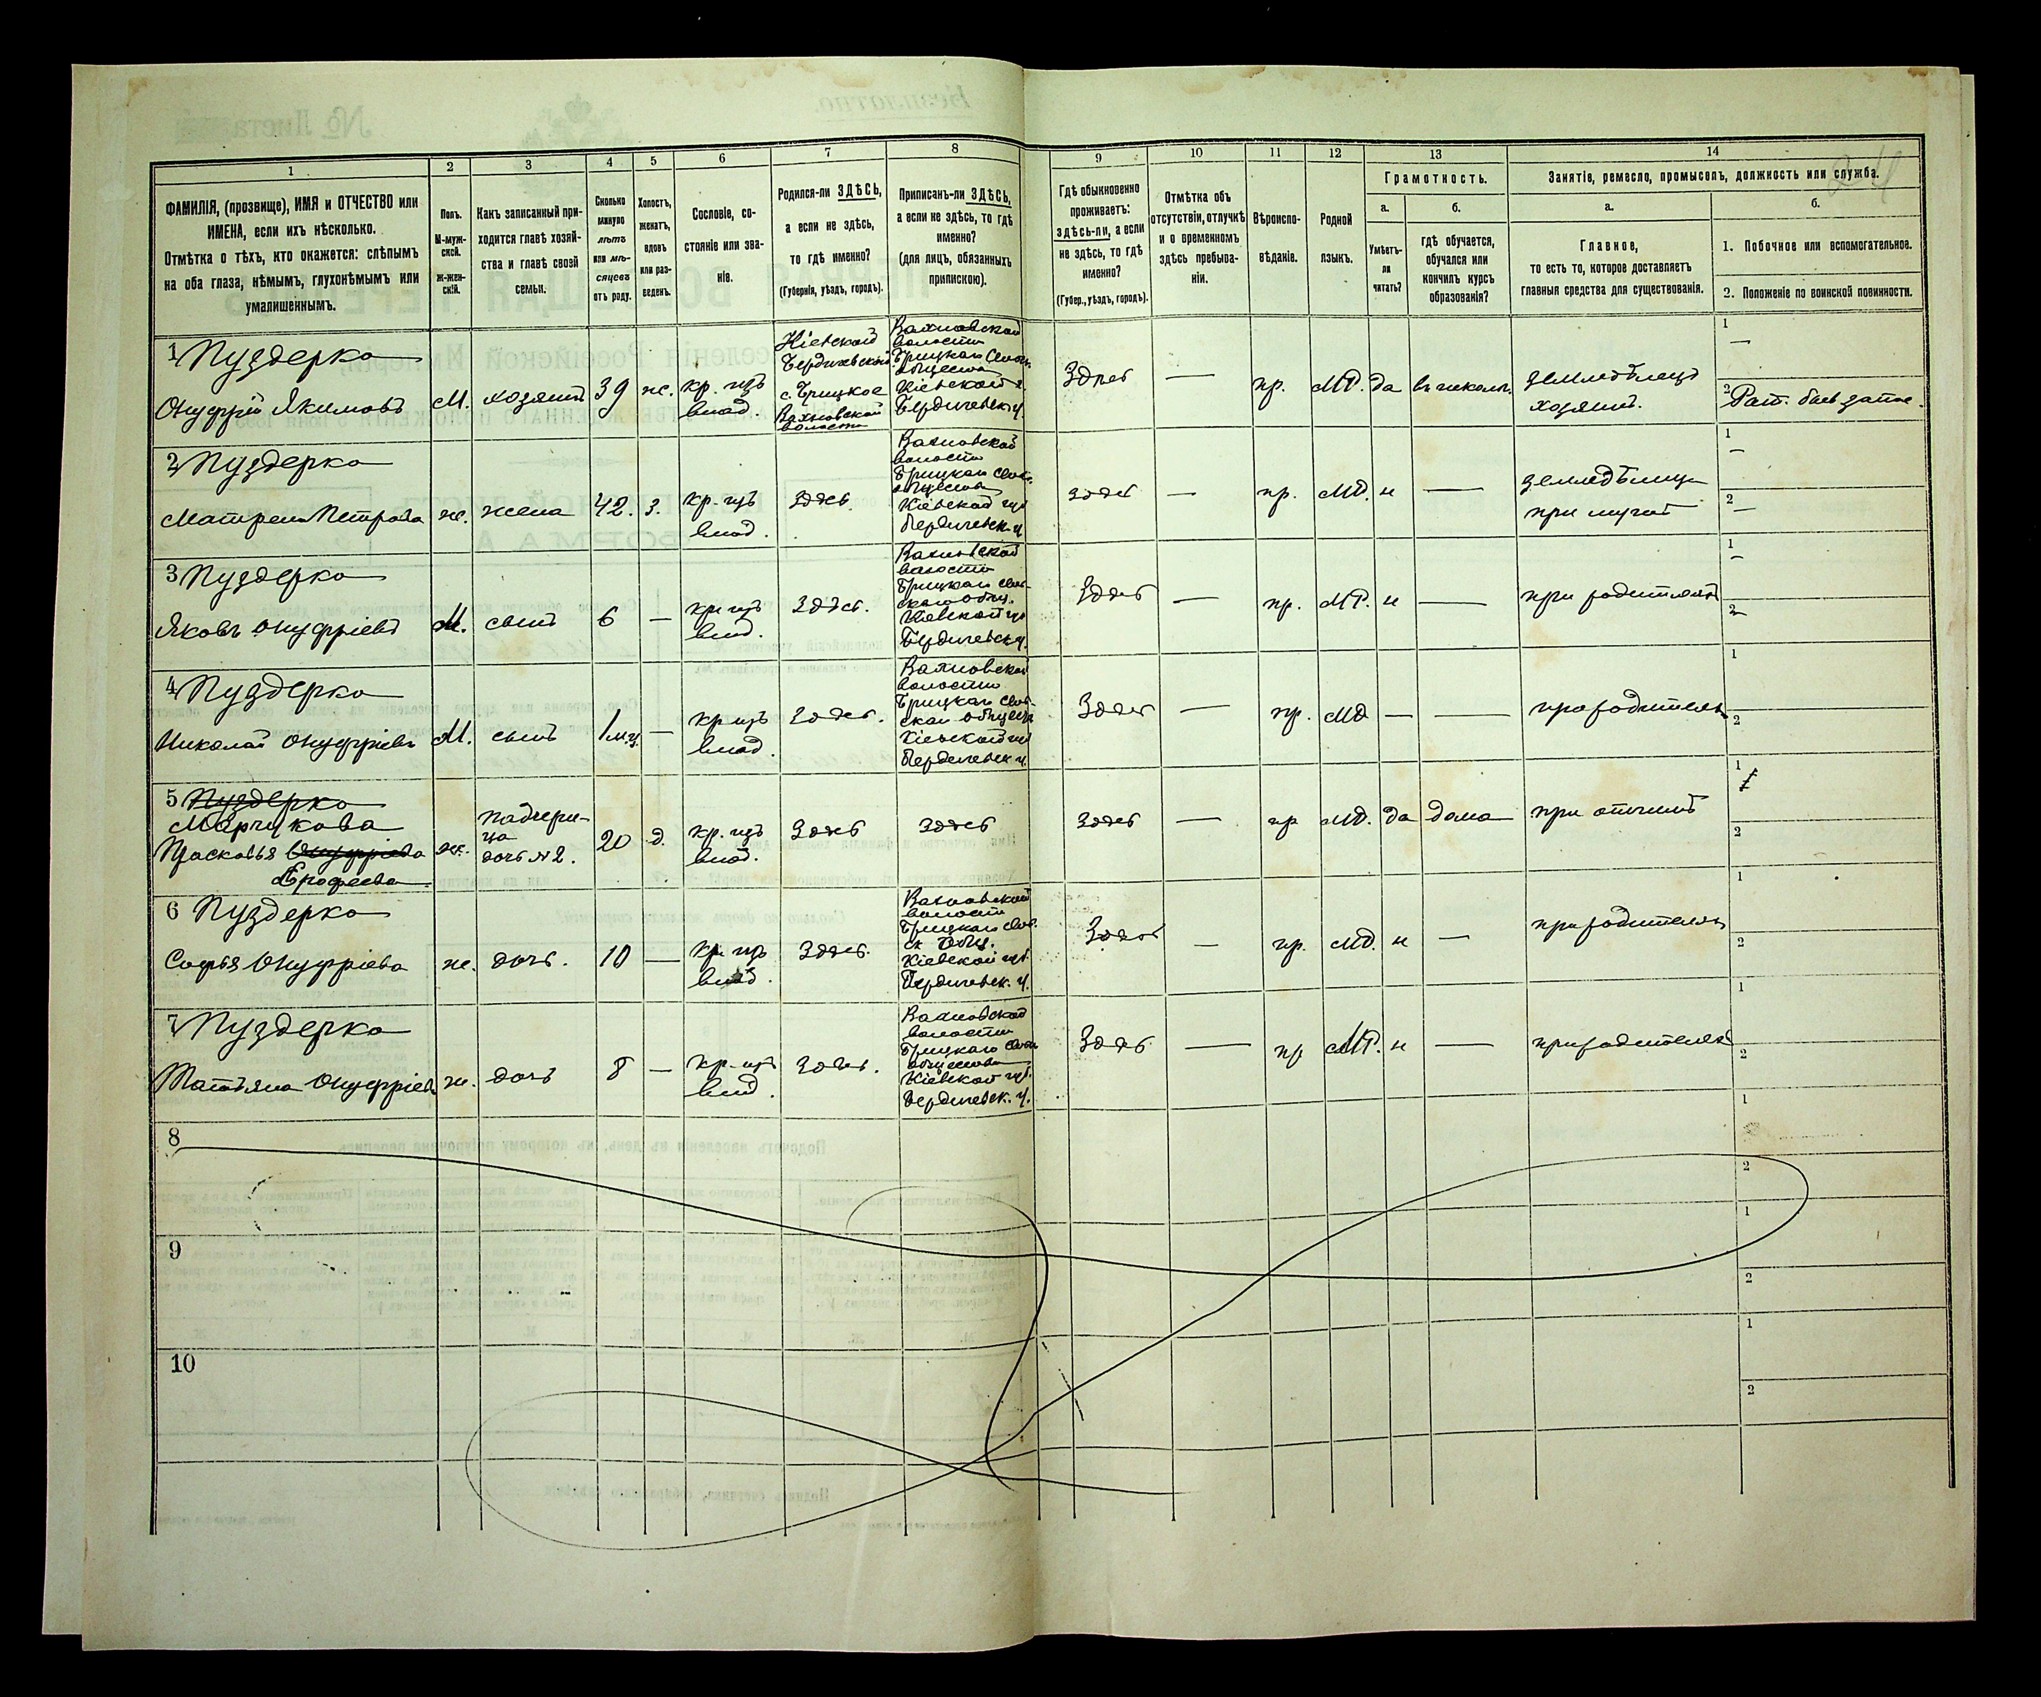 1 2 3 4 5 6 7 8 9 10 11 12 13 14
24
ФАМИЛІЯ, (прозвище), ИМЯ и ОТЧЕСТВО или
ИМЕНА, если ихъ нѣсколько.
Отмѣтка о тѣхъ, кто окажется: слѣпымъ
на оба глаза, нѣмымъ, глухонѣмымъ или
умалишеннымъ.
Полъ.
М-муж-
ской.
ж-жен-
скій.
Какъ записанный при-
ходится главѣ хозяй-
ства и главѣ своей
семьи.
Сколько
минуло
лѣтъ
или мѣ-
сяцевъ
отъ роду.
Холостъ,
женатъ,
вдовъ
или раз-
веденъ.
Сословіе, со-
стояніе или зва-
ніе.
Родился-ли ЗДѢСЬ,
а если не здѣсь,
то гдѣ именно?
(Губернія, уѣздъ, городъ).
Приписанъ-ли ЗДѢСЬ,
а если не здѣсь, то гдѣ
именно?
(для лицъ, обязанныхъ
припискою).
Гдѣ обыкновенно
проживаетъ:
здѣсь-ли, а если
не здѣсь, то гдѣ
именно?
(Губер., уѣздъ, городъ).
Отмѣтка объ
отсутствіи, отлучкѣ
и о временномъ
здѣсь пребыва-
ніи.
Вѣроиспо-
вѣданіе.
Родной
языкъ.
Грамотность.
а.
Умѣетъ-
ли
читать?
б.
гдѣ обучается,
обучался или
кончилъ курсъ
образованія?
Занятіе, ремесло, промыселъ, должность или служба.
а.
Главное,
то есть то, которое доставляетъ
главныя средства для существованія.
б.
1. Побочное или вспомогательное.
2. Положеніе по воинской повинности.
1 Пуздерко
Онуфрій Якимовъ
М.
хозяинъ
39
ж.
кр. изъ
влад.
Кіевской
Бердичевской
с. Брицкое
Вахновской
волости
Вахновской
волости
Брицкаго
общества
Кіевской г.
Бердичевск. у.
Здѣсь
—
пр.
МР.
да
въ школѣ.
земледѣлецъ
хозяинъ.
1 —
2 Рат.
2 Пуздерко
Матрена Петрова
ж.
жена
42.
З.
кр. изъ
влад.
Здѣсь.
Вахновской
волости
Брицкаго
общества
Кіевской губ
Бердичевск. у.
здѣсь
—
пр.
МР.
н
—
земледѣлица
при мужѣ
1 —
2 —
3 Пуздерко
Яковъ Онуфріевъ
М.
сынъ
6
—
кр. изъ
влад.
Здѣсь.
Вахновской
волости
Брицкаго сель-
скаго общ.
Кіевской губ
Бердичевск. у.
Здѣсь
—
пр.
МР.
н
—
при родителяхъ
1 —
2 —
4 Пуздерко
Николай Онуфріевъ
М.
сынъ
1 м.
—
кр. изъ
влад.
Здѣсь.
Вахновской
волости
Брицкаго сель-
скаго общества
Кіевской губ
Бердичевск. у.
Здѣсь
—
пр.
МР
—
—
при родителяхъ
1
2
5 Пуздерко
Марчукова
Прасковья Онуфріева
Ерофеева
ж.
Падчери-
ца
дочь №2.
20
д.
кр. изъ
влад.
Здѣсь
здѣсь
здѣсь
—
пр
МР.
да
дома
при отчимѣ
1
2
6 Пуздерко
Софья Онуфріева
ж.
дочь.
10
—
кр. изъ
влад.
Здѣсь.
Вахновской
волости
Брицкаго сель-
ск общ.
Кіевской губ.
Бердичевск. у.
Здѣсь
—
пр.
МР.
н
—
при родителяхъ
1
2
7 Пуздерко
Татьяна Онуфріева
ж.
дочь
8
—
кр. изъ
влад.
Здѣсь.
Вахновской
волости
Брицкаго
общества
Кіевской губ.
Бердичевск. у.
Здѣсь
—
пр
МР.
н
—
при родителяхъ
1
2
8
1
2
9
1
2
10
1
2